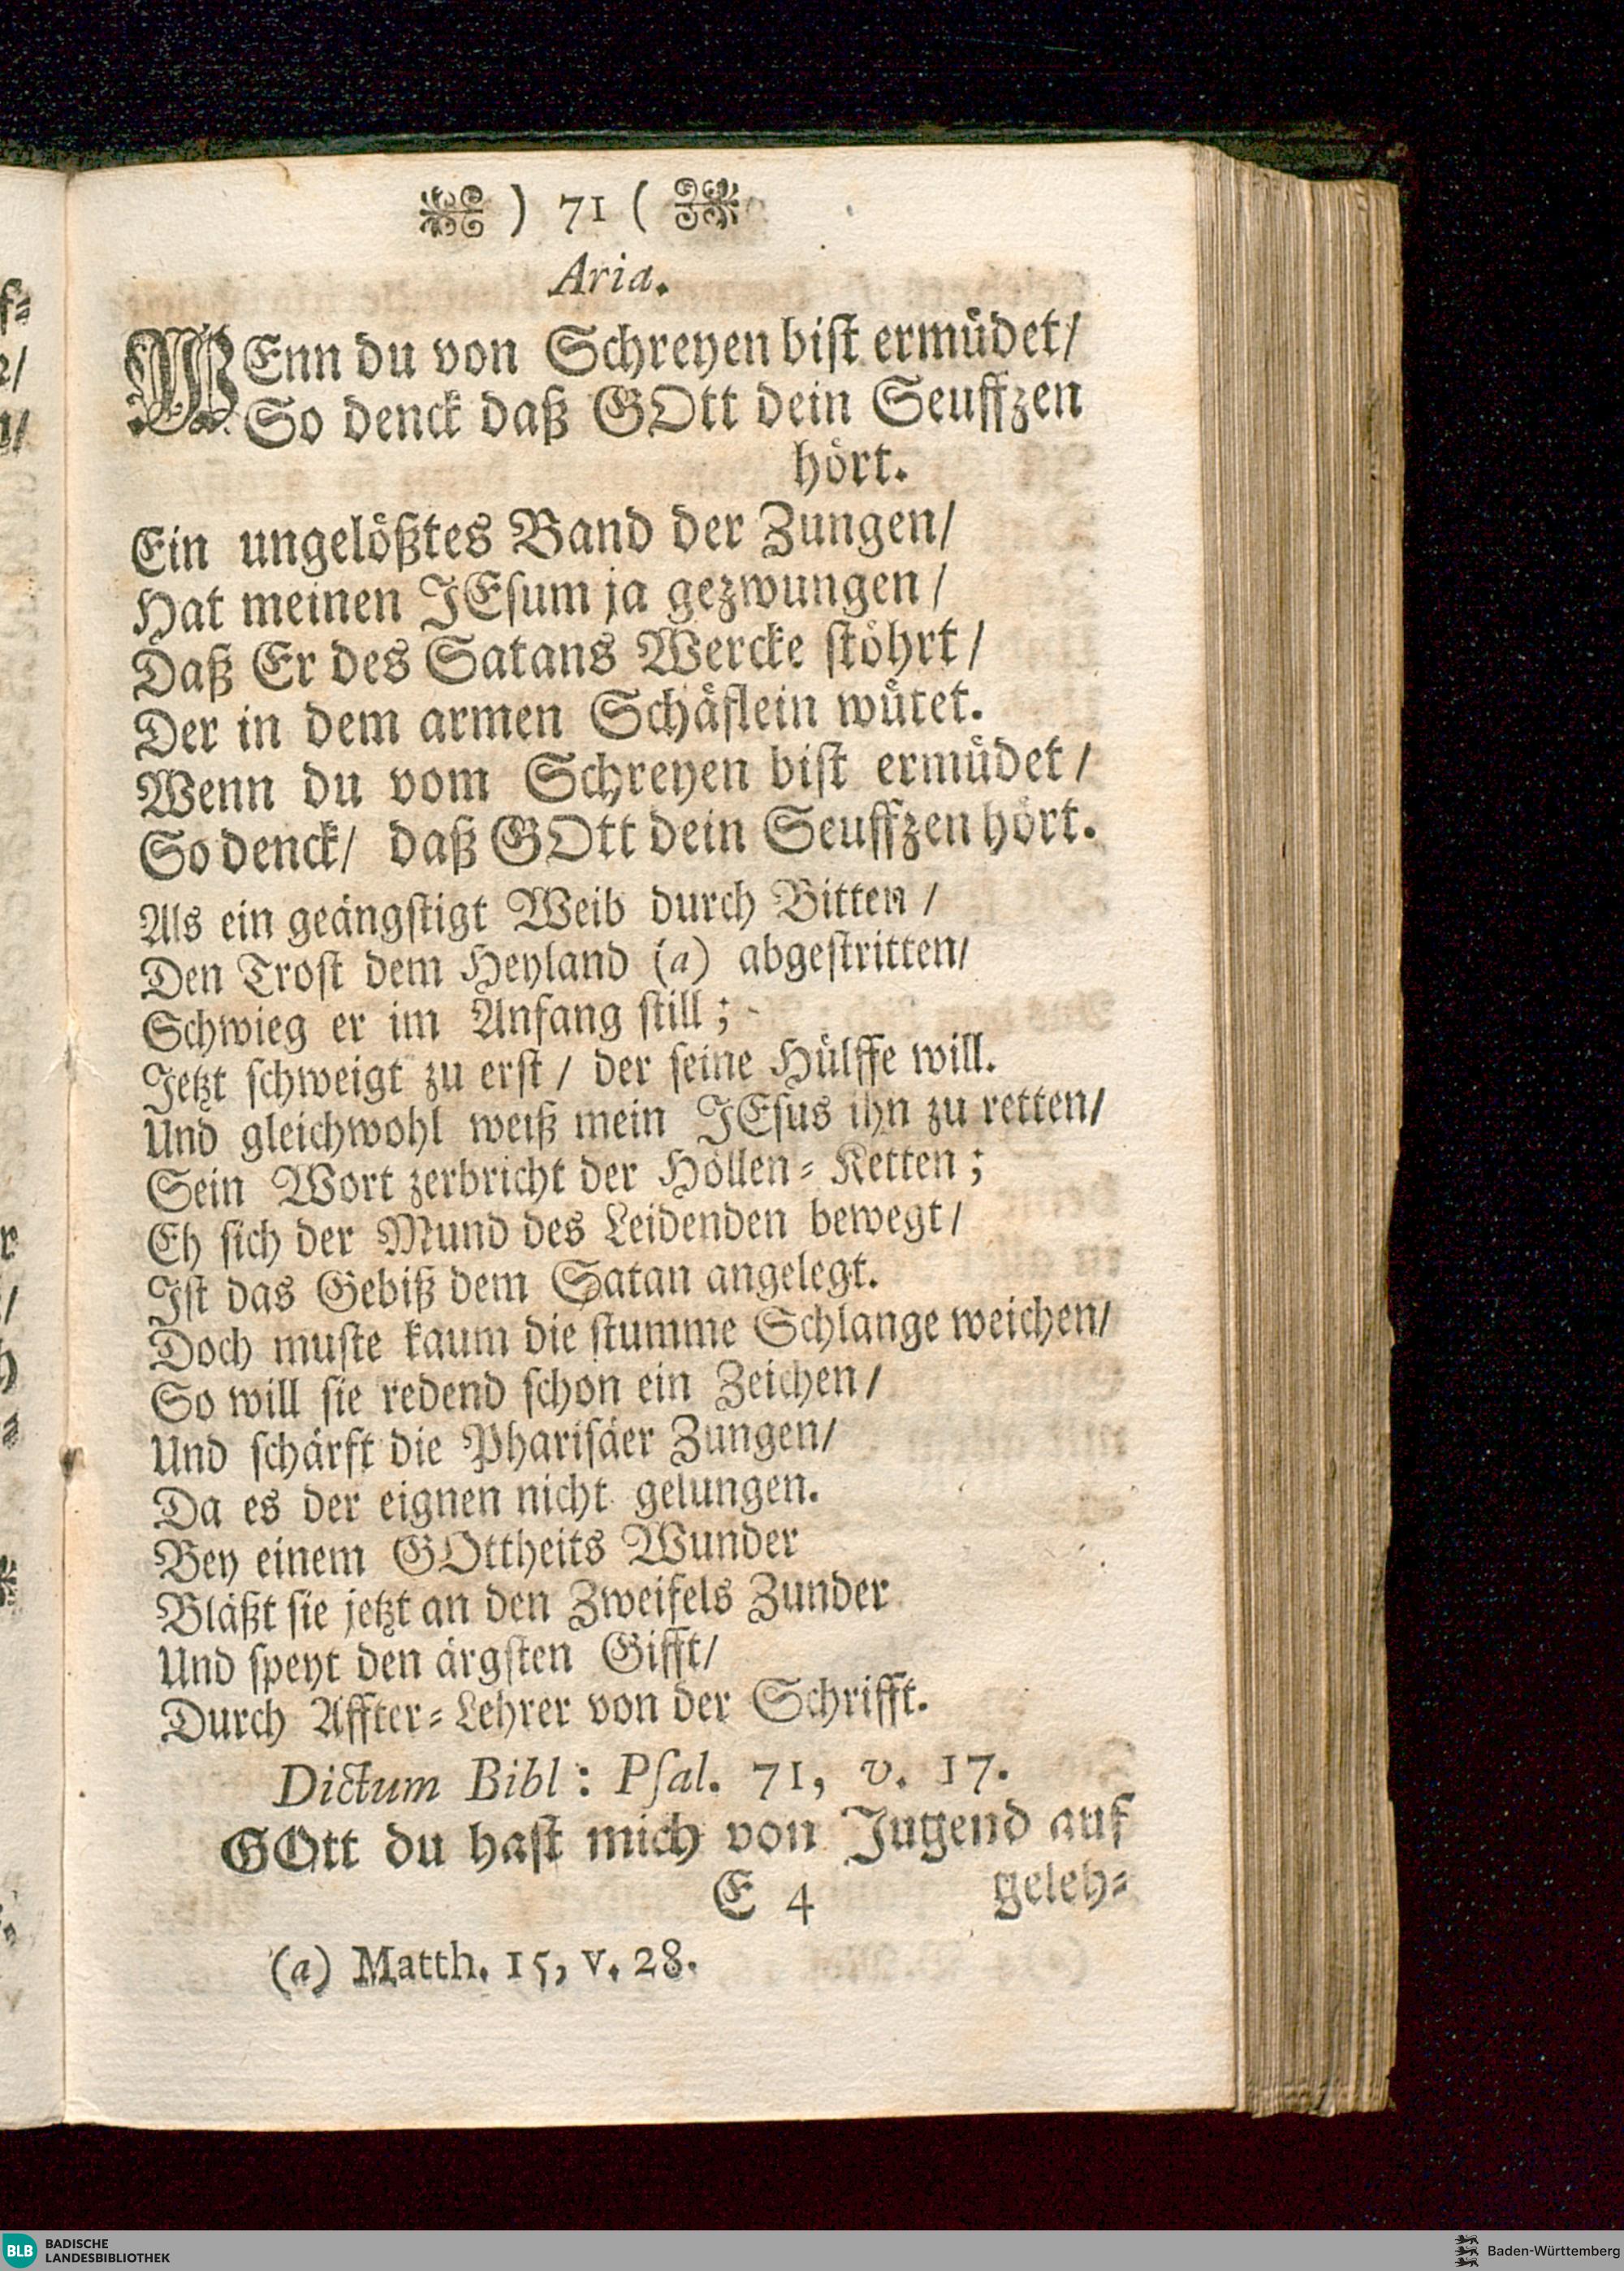 ) 71 (
Aria.
WEnn du von Schreyen bist ermüdet/
So denck daß GOtt dein Seuffzen
hört.
Ein ungelößtes Band der Zungen/
Hat meinen JEsum ja gezwungen/
Daß Er des Satans Wercke stöhrt/
Der in dem armen Schäflein wütet.
Wenn du vom Schreyen bist ermüdet/
So denck/ daß GOtt dein Seuffzen hört.
Als ein geängstigt Weib durch Bitten/
Den Trost dem Heyland (a) abgestritten/
Schwieg er im Anfang still;
Jetzt schweigt zu erst/ der seine Hülffe will.
Und gleichwohl weiß mein JEsus ihn zu retten/
Sein Wort zerbricht der Höllen-Ketten;
Eh sich der Mund des Leidenden bewegt/
Ist das Gebiß dem Satan angelegt.
Doch muste kaum die stumme Schlange weichen/
So will sie redend schon ein Zeichen/
Und schärft die Pharisäer Zungen/
Da es der eignen nicht gelungen.
Bey einem GOttheits Wunder
Bläßt sie jetzt an den Zweifels Zunder
Und speyt den ärgsten Gifft/
Durch Affter-Lehrer von der Schrifft.
Dictum Bibl: Psal. 71, v. 17.
GOtt du hast mich von Jugend auf
E 4 geleh-
(a) Matth. 15, v. 28.
BLB BADISCHE
LANDESBIBLIOTHEK
Baden-Württemberg